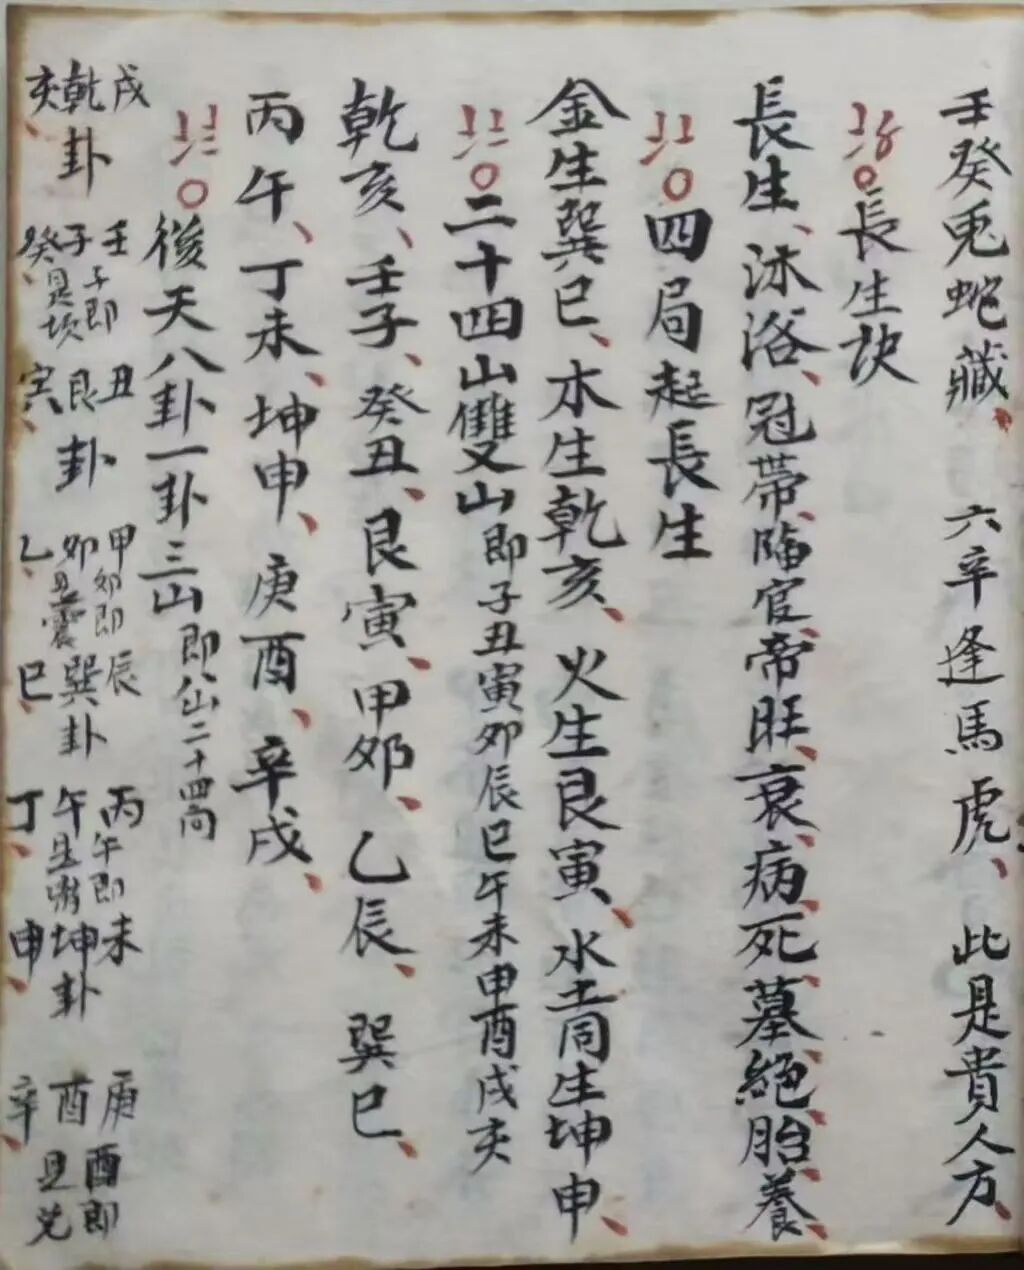 壬癸兎蛇藏、六辛逢馬虎、此是貴人方、
○長生訣
長生、沐浴、冠帶、臨官、帝旺、衰、病、死、墓、絶、胎、養、
○四局起長生
金生巽巳、木生乾亥、火生艮寅、水土同生坤申、
○二十四山雙山即子丑寅卯辰巳午未申酉戌亥
乾亥、壬子、癸丑、艮寅、甲卯、乙辰、巽巳、
丙午、丁未、坤申、庚酉、辛戌、
○後天八卦一卦三山即八山二十四向
戌乾亥、卦
壬子癸、子即是坎
丑艮寅、卦
甲卯乙、卯即是震
辰巽巳、卦
丙午丁、午即是離
未坤申、卦
庚酉辛、酉即是兌